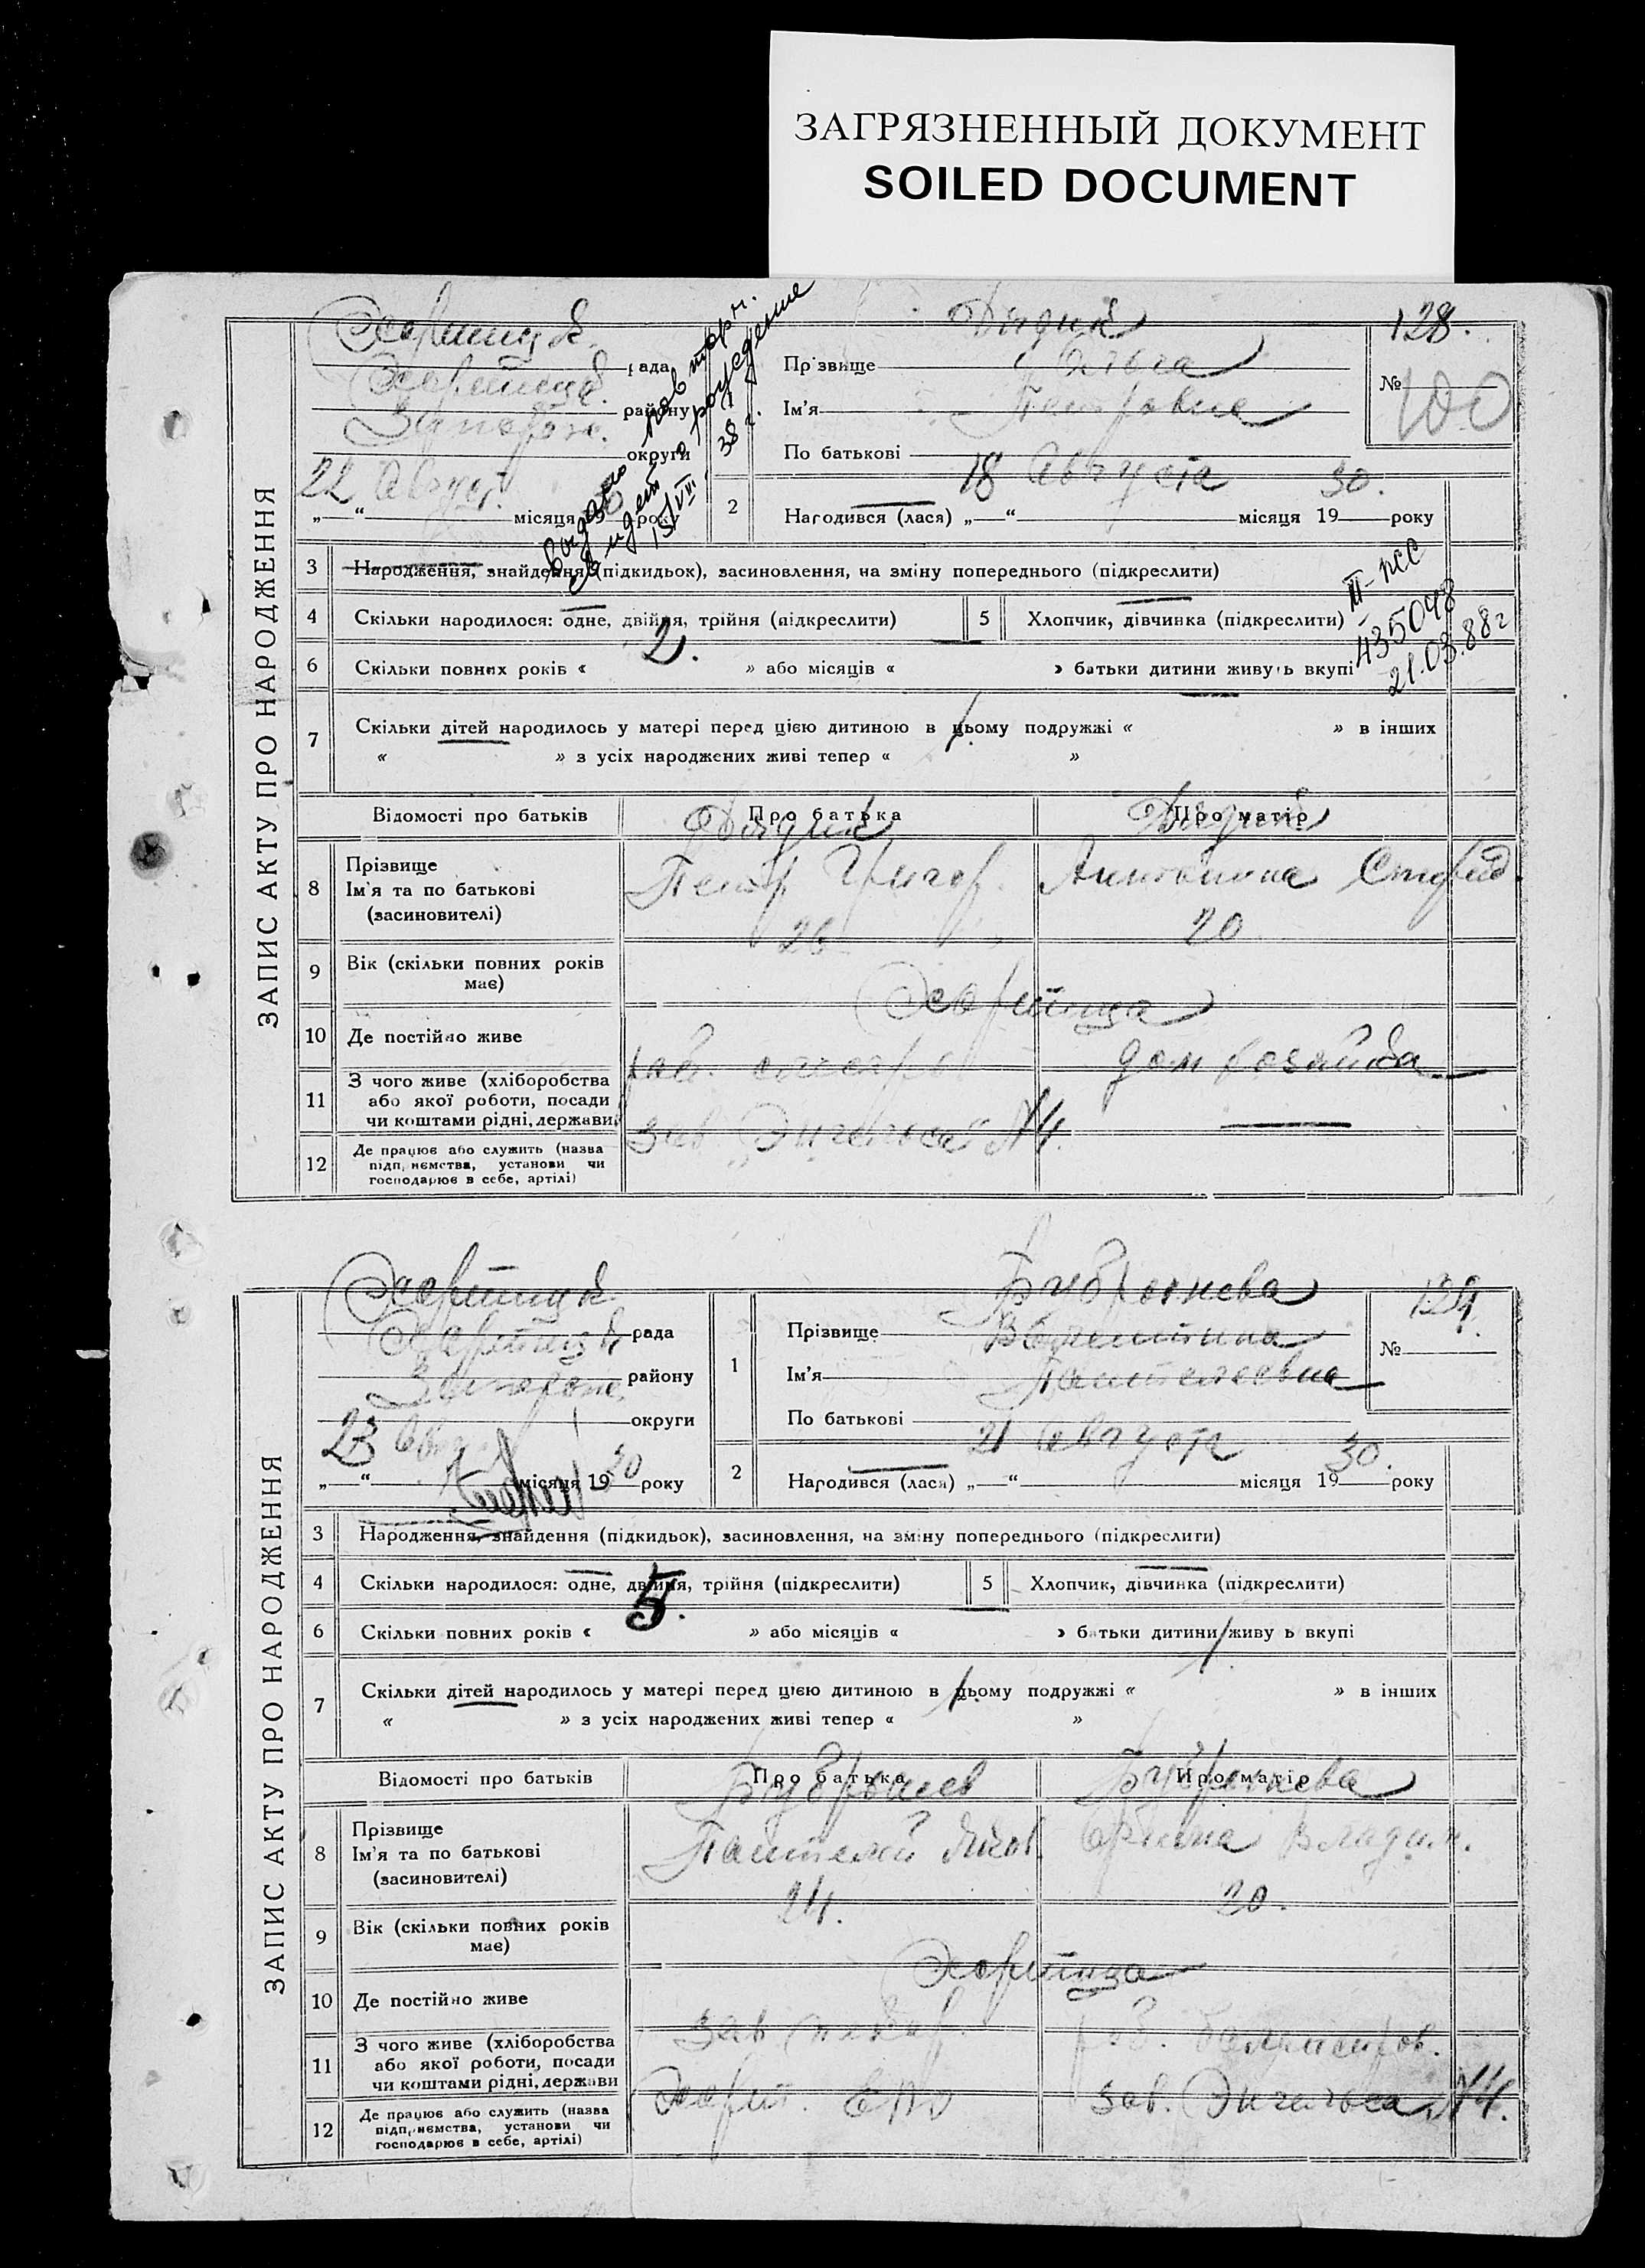 ЗАГРЯЗНЕННЫЙ ДОКУМЕНТ
SOILED DOCUMENT
ЗАПИС АКТУ ПРО НАРОДЖЕННЯ
Хортицк.
рада
Хортицк.
району
Запорож.
округи
22 Август
„—“ місяця 1930 року
Дидик
128.
Прізвище Ольга
№ 100
Ім'я Петровна
По батькові
18 Августа 30.
2 Народився (лася) „—“ місяця 19 року
38 г.
15/VIII
3 Народження, знайдення (підкидьок), засиновлення, на зміну попереднього (підкреслити)
4 Скільки народилося: одне, двійня, трійня (підкреслити) 5 Хлопчик, дівчинка (підкреслити)
435048
21.03.88 г
2.
6 Скільки повних років « » або місяців « » батьки дитини живуть вкупі
7 Скільки дітей народилось у матері перед цією дитиною в цьому подружжі « » в інших
« » з усіх народжених живі тепер « »
Відомості про батьків Про батька Про матір
Дидик Дидик
8 Прізвище
Ім'я та по батькові
(засиновителі)
Петр Григор. Антонина
26 20
9 Вік (скільки повних років
має)
Хортица
10 Де постійно живе
раб. дом хозяйка
11 З чого живе (хліборобства
або якої роботи, посади
чи коштами рідні, держави
зав. Энгельса №4.
12 Де працює або служить (назва
підприємства, установи чи
господарює в себе, артілі)
ЗАПИС АКТУ ПРО НАРОДЖЕННЯ
Хортицк.
рада
Хортицк.
району
Запорож.
округи
23 Авг.
„—“ місяця 1930 року
129.
1 Прізвище Валентина
№
Ім'я Пантелеевна
По батькові
21 Августа 30.
2 Народився (лася) „—“ місяця 19 року
3 Народження, знайдення (підкидьок), засиновлення, на зміну попереднього (підкреслити)
4 Скільки народилося: одне, двійня, трійня (підкреслити) 5 Хлопчик, дівчинка (підкреслити)
5.
6 Скільки повних років « » або місяців « » батьки дитини живуть вкупі
1.
7 Скільки дітей народилось у матері перед цією дитиною в цьому подружжі « » в інших
« » з усіх народжених живі тепер « »
Відомості про батьків Про батька Про матір
8 Прізвище
Ім'я та по батькові
(засиновителі)
Пантелей Яков. Владим.
24. 20.
9 Вік (скільки повних років
має)
Хортица
10 Де постійно живе
зав. раб.
11 З чого живе (хліборобства
або якої роботи, посади
чи коштами рідні, держави
Хорт. ЕПО зав. Энгельса №4.
12 Де працює або служить (назва
підприємства, установи чи
господарює в себе, артілі)